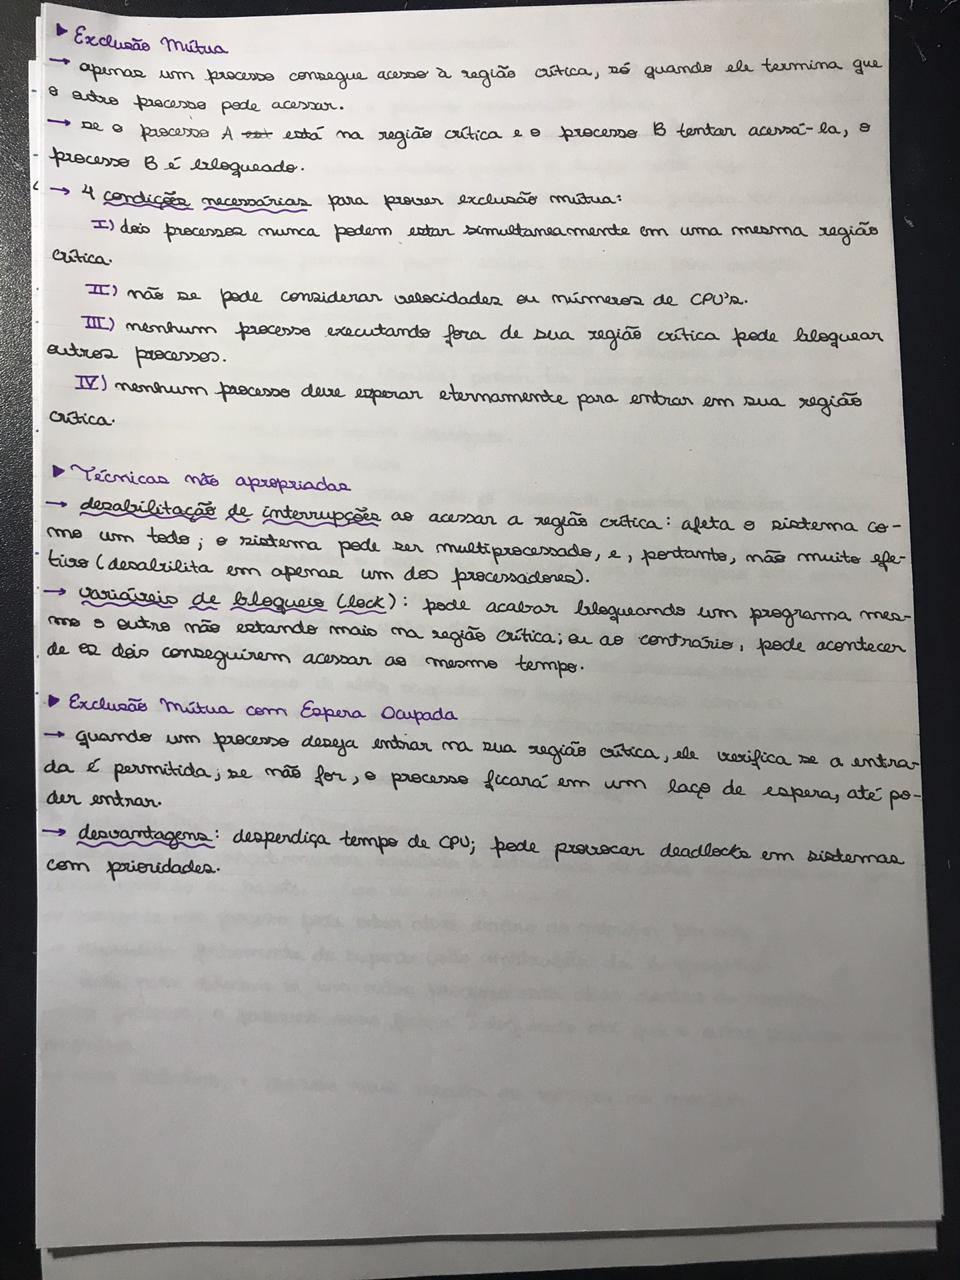 ▶ Exclusão Mútua
→ apenas um processo consegue acesso à região crítica, só quando ele termina que
o outro processo pode acessar.
→ se o processo A está na região crítica e o processo B tentar acessá-la, o
processo B é bloqueado.
→ 4 condições necessárias para prover exclusão mútua:
I) dois processos nunca podem estar simultaneamente em uma mesma região
crítica.
II) não se pode considerar velocidades ou números de CPU's.
III) nenhum processo executando fora de sua região crítica pode bloquear
outros processos.
IV) nenhum processo deve esperar eternamente para entrar em sua região
crítica.
▶ Técnicas não apropriadas
→ desabilitação de interrupções ao acessar a região crítica: afeta o sistema co-
mo um todo; o sistema pode ser multiprocessado, e, portanto, não muito efe-
tivo (desabilita em apenas um dos processadores).
→ variáveis de bloqueio (lock): pode acabar bloqueando um programa mes-
mo o outro não estando mais na região crítica; ou ao contrário, pode acontecer
de os dois conseguirem acessar ao mesmo tempo.
▶ Exclusão Mútua com Espera Ocupada
→ quando um processo deseja entrar na sua região crítica, ele verifica se a entra-
da é permitida; se não for, o processo ficará em um laço de espera, até po-
der entrar.
→ desvantagens: desperdiça tempo de CPU; pode provocar deadlocks em sistemas
com prioridades.